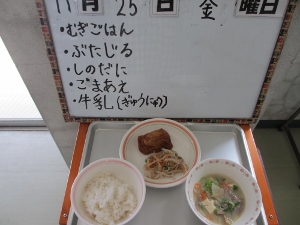 11月25日金曜日
・むぎごはん
・ぶたじる
・しのだに
・ごまあえ
・牛乳(ぎゅうにゅう)